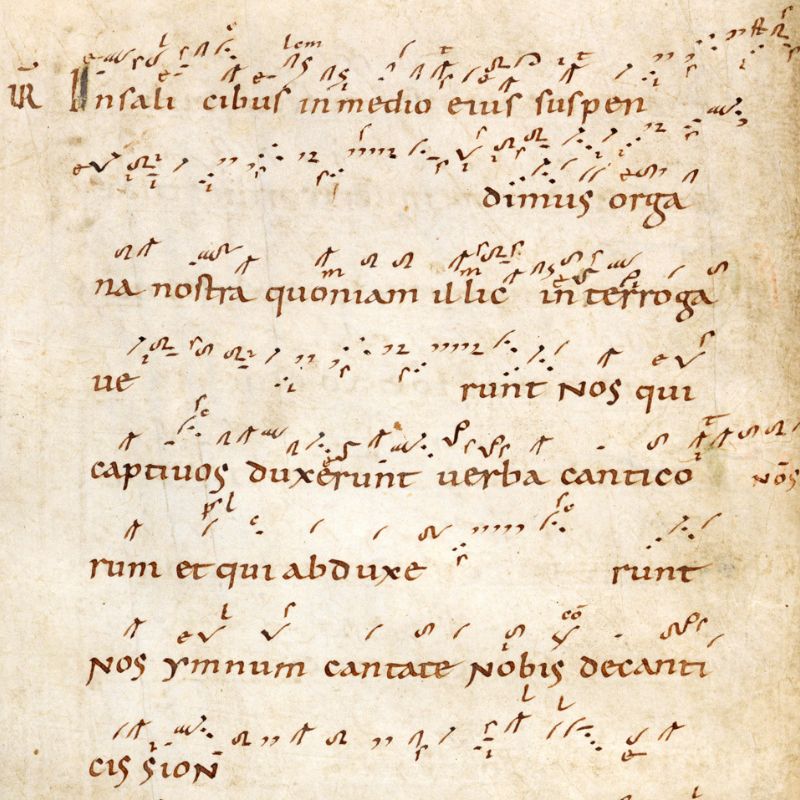 R̄ In sali cibus in medio eius suspen
dimus orga
na nostra quoniam illic interroga
ue
runt nos qui
captiuos duxerunt uerba cantico nōs
rum et qui abduxe
runt
nos ymnum cantate nobis de canti
cis sion